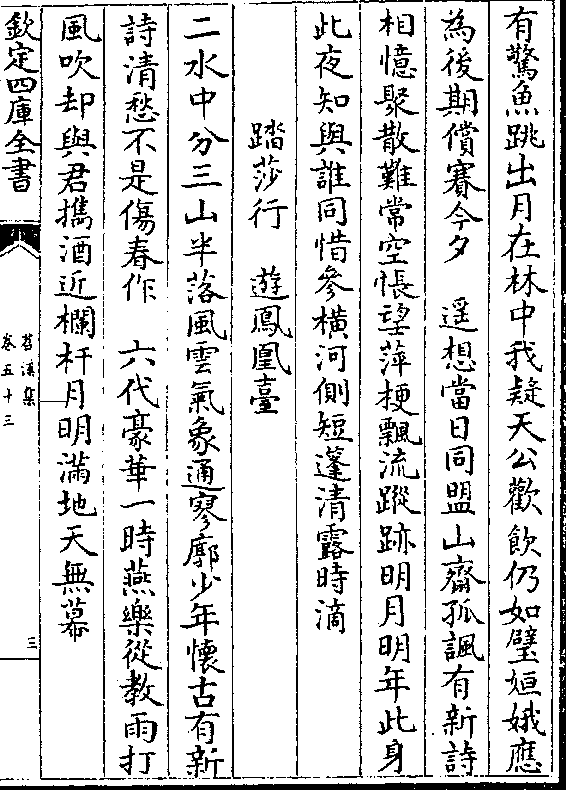 有驚魚跳出月在林中我疑天公歡飲仍如璧姮娥應
為後期償賽今夕　遥想當日同盟山齋孤諷有新詩
相憶聚散難常空悵望萍梗飄流蹤跡明月明年此身
此夜知與誰同惜參横河側短蓬清露時滴
踏莎行　遊鳳凰臺
二水中分三山半落風雲氣象通寥廓少年懷古有新
詩清愁不是傷春作　六代豪華一時燕樂從教雨打
風吹却與君擕酒近欄杆月明滿地天無幕
欽定四庫全書
苕溪集
卷五十三
三